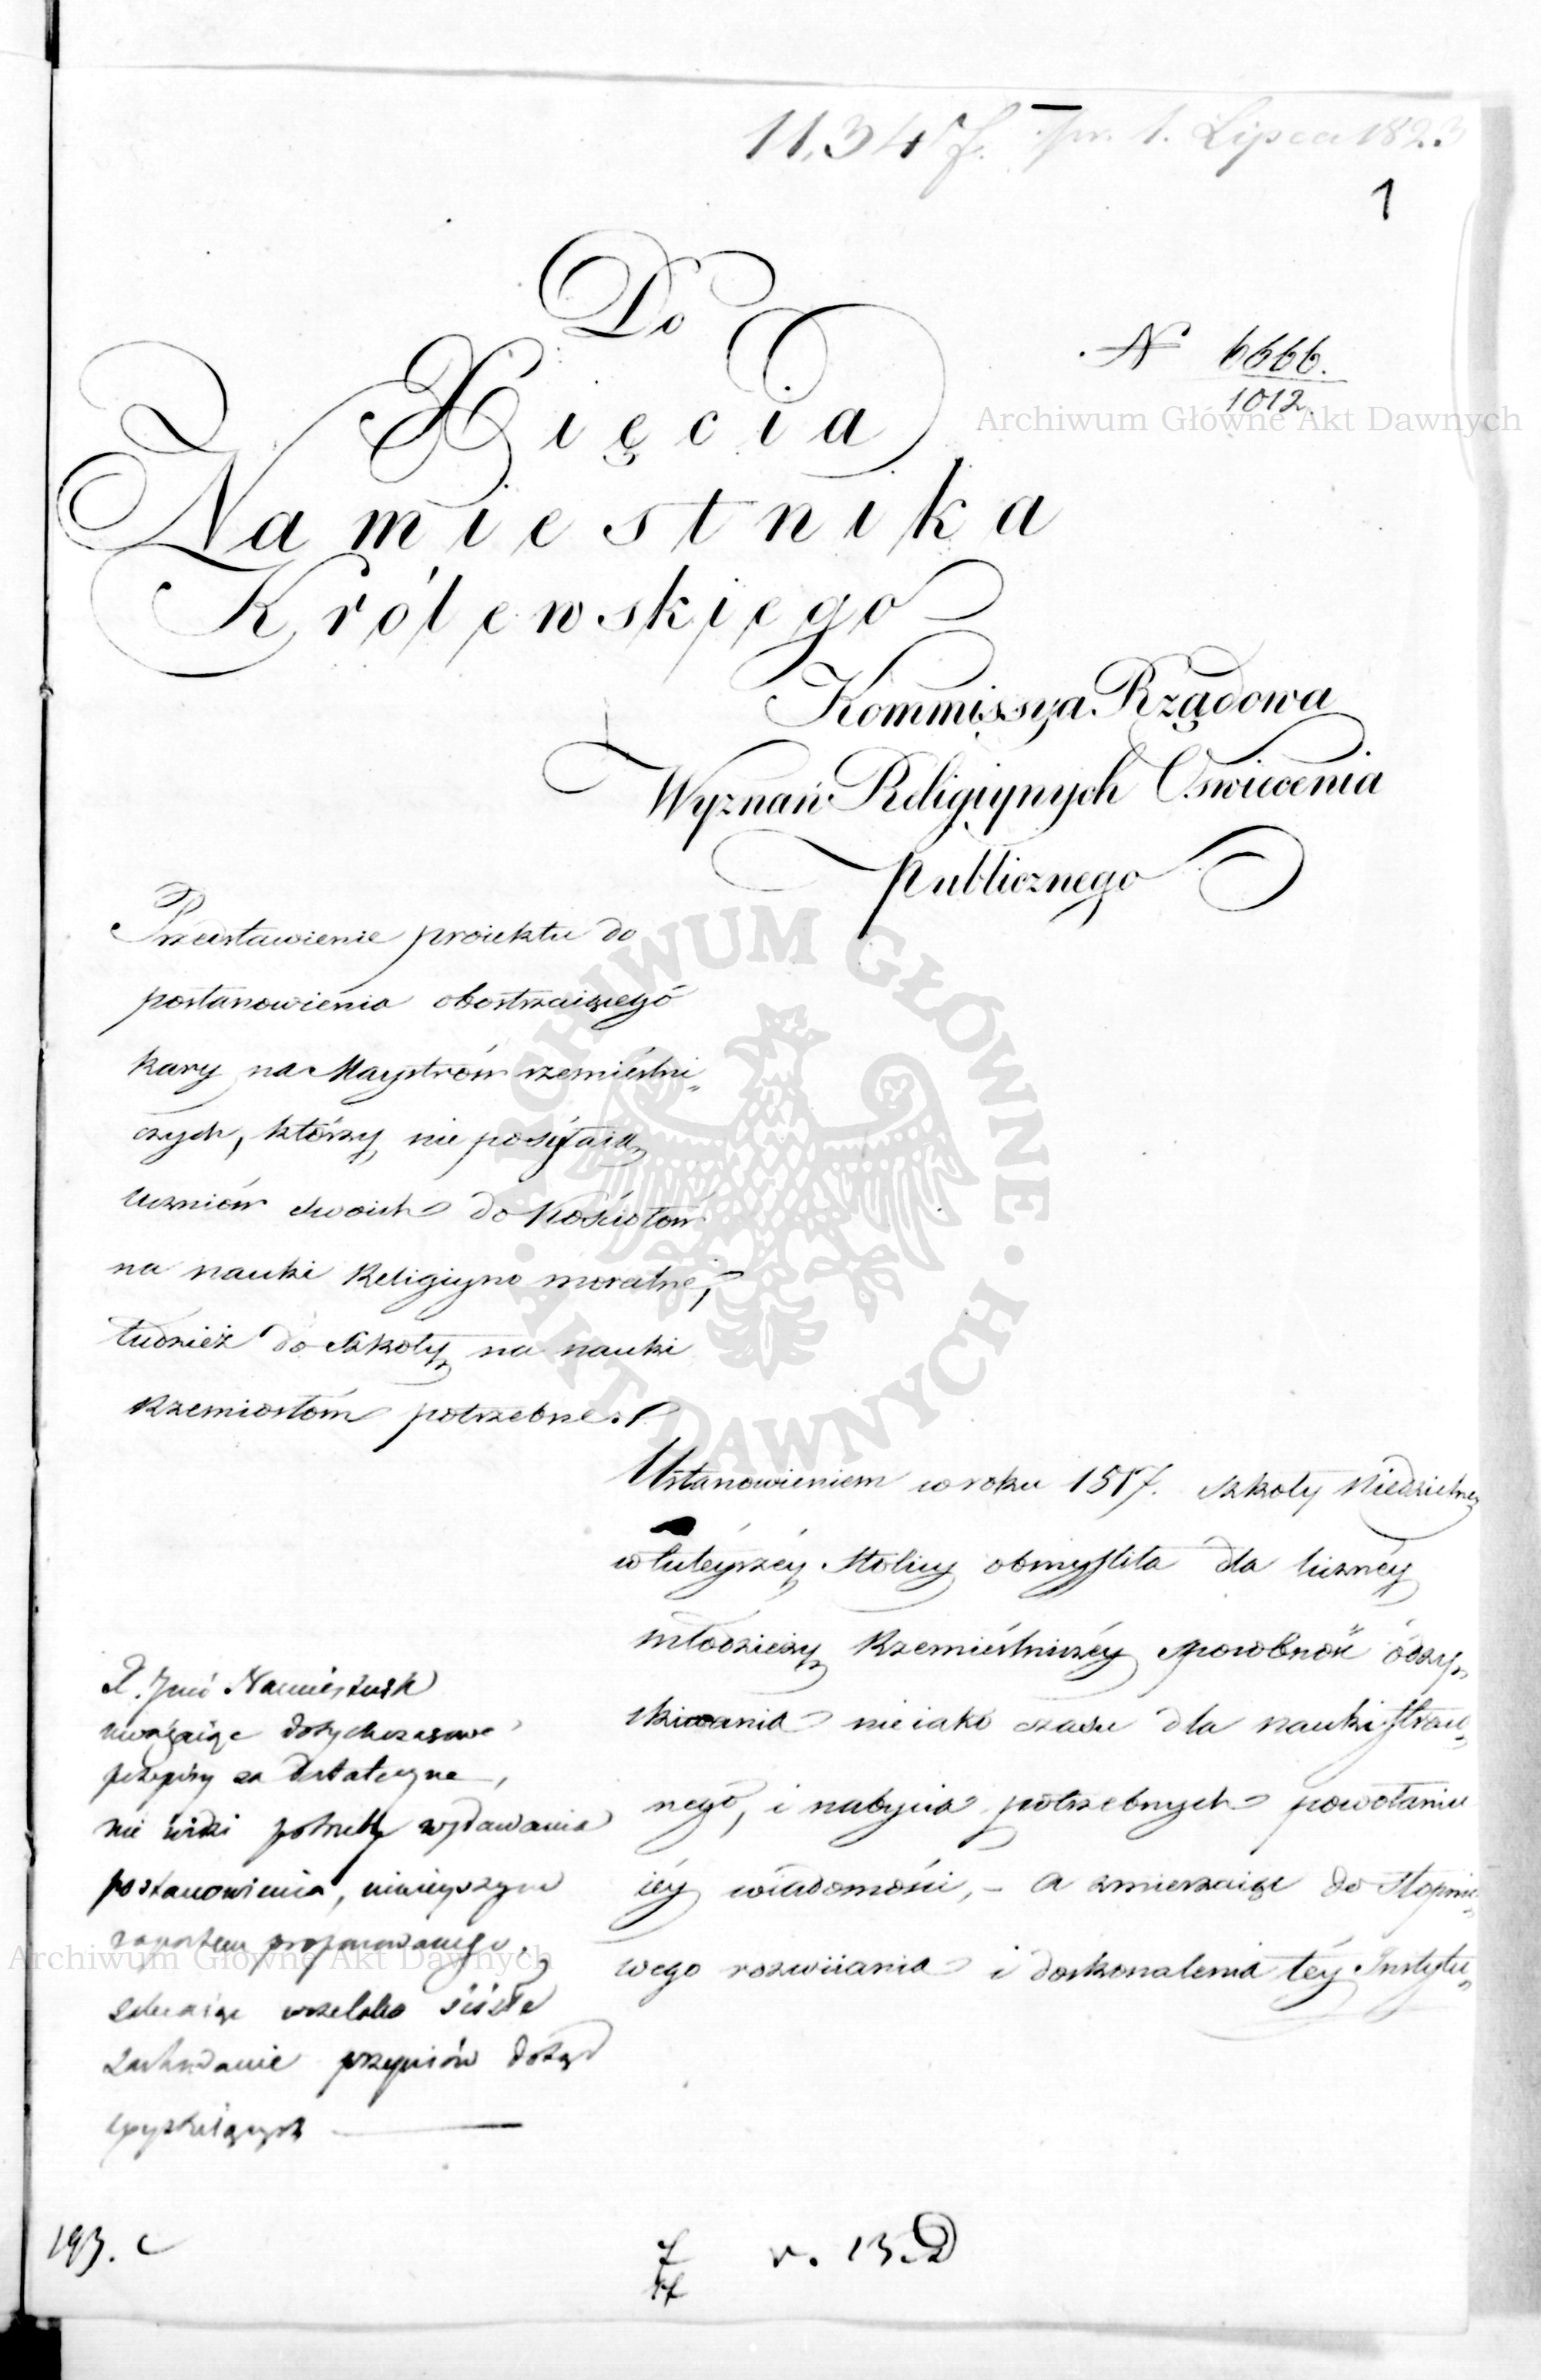 11,345 f. pr. 1. Lipca 1823
1
Do
Xięcia
N 6666.
1012.
Archiwum Główne Akt Dawnych
Namiestnika
Królewskiego
Kommissya Rządowa
Wyznań Religiynych Oswiecenia
Publicznego
Przedstawienie proiektu do
postanowienia obostrzaiącego
kary na Maystrów rzemieślni„
czych, którzy nie posyłaią
uczniów swoich do Kościołów
na nauki Religiyno moralne,
tudzież do szkoły na nauki
Rzemiosłóm potrzebne.
ARCHIWUM GŁÓWNE AKT DAWNYCH
Ustanowieniem w roku 1817. szkoły Niedzielney
w tuteyszéy Stolicy obmyśliła dla liczney
młodzieży Rzemieślniczéy sposobność odzy„
skiwania nieiako czasu dla nauki straco„
nego, i nabycia potrzebnych powołaniu
iéy wiadomości, – a zmierzaiąc do stopnio„
wego rozwiiania i doskonalenia téy Instytu„
X. Jmć Namiestnik
uważaiąc dotychczasowe
przepisy za dostateczne,
nie widzi potrzeby wydawania
postanowienia, ninieyszym
raportem proponowanego,
zalecaiąc wszelako ścisłe
zachowanie przepisów dotąd
exystuiących
Archiwum Główne Akt Dawnych
193. c
v. 13.